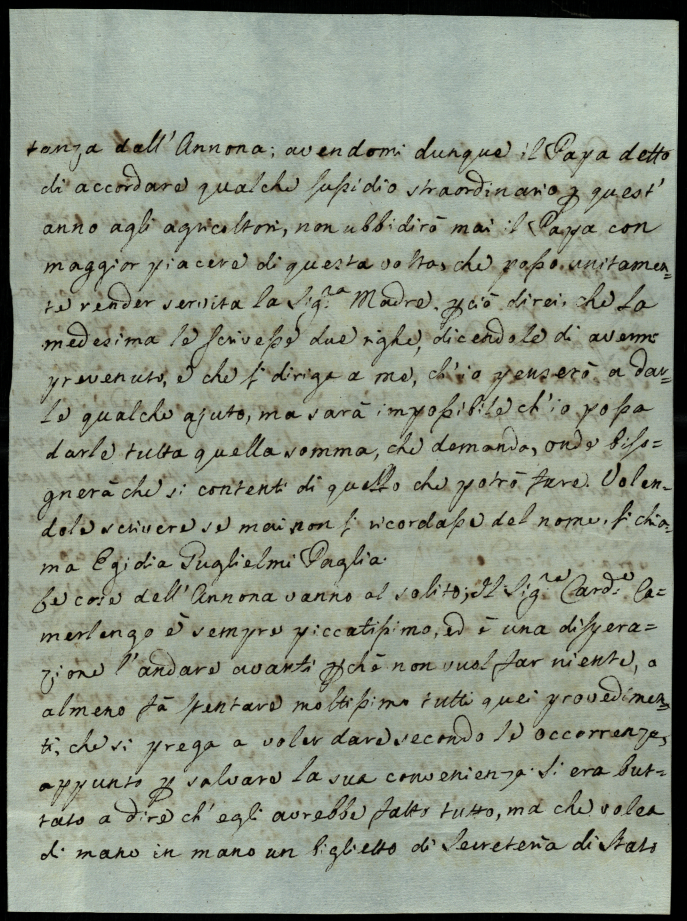 tanza dall'Annona; avendomi dunque il Papa detto
di accordare qualche sussidio straordinario p quest'
anno agli agricoltori, non ubbidirò mai il Papa con
maggior piacere di questa volta, che posso unitamen-
te render servita la Sig.ra Madre. pciò direi, che la
medesima le scrivesse due righe, dicendole di avermi
prevenuto, e che si diriga a me, ch'io penserò a dar-
le qualche ajuto, ma sarà impossibile ch'io possa
darle tutta quella somma, che demanda, onde biso-
gnerà che si contenti di quello che potrò fare. Volen-
dole scrivere se mai non si ricordasse del nome, si chia-
ma Egidia Guglielmi Paglia.
Le cose dell'Annona vanno al solito; Il Sig.re Card.e Ca-
merlengo è sempre piccatissimo, ed è una dispera-
zione l'andare avanti pchè non vuol far niente, o
almeno fà stentare moltissimo tutti quei provedimen-
ti, che si prega a voler dare secondo le occorrenze,
appunto p salvare la sua convenienza. Si era but-
tato a dire ch'egli avrebbe fatto tutto, ma che volea
di mano in mano un biglietto di Secreteria di Stato